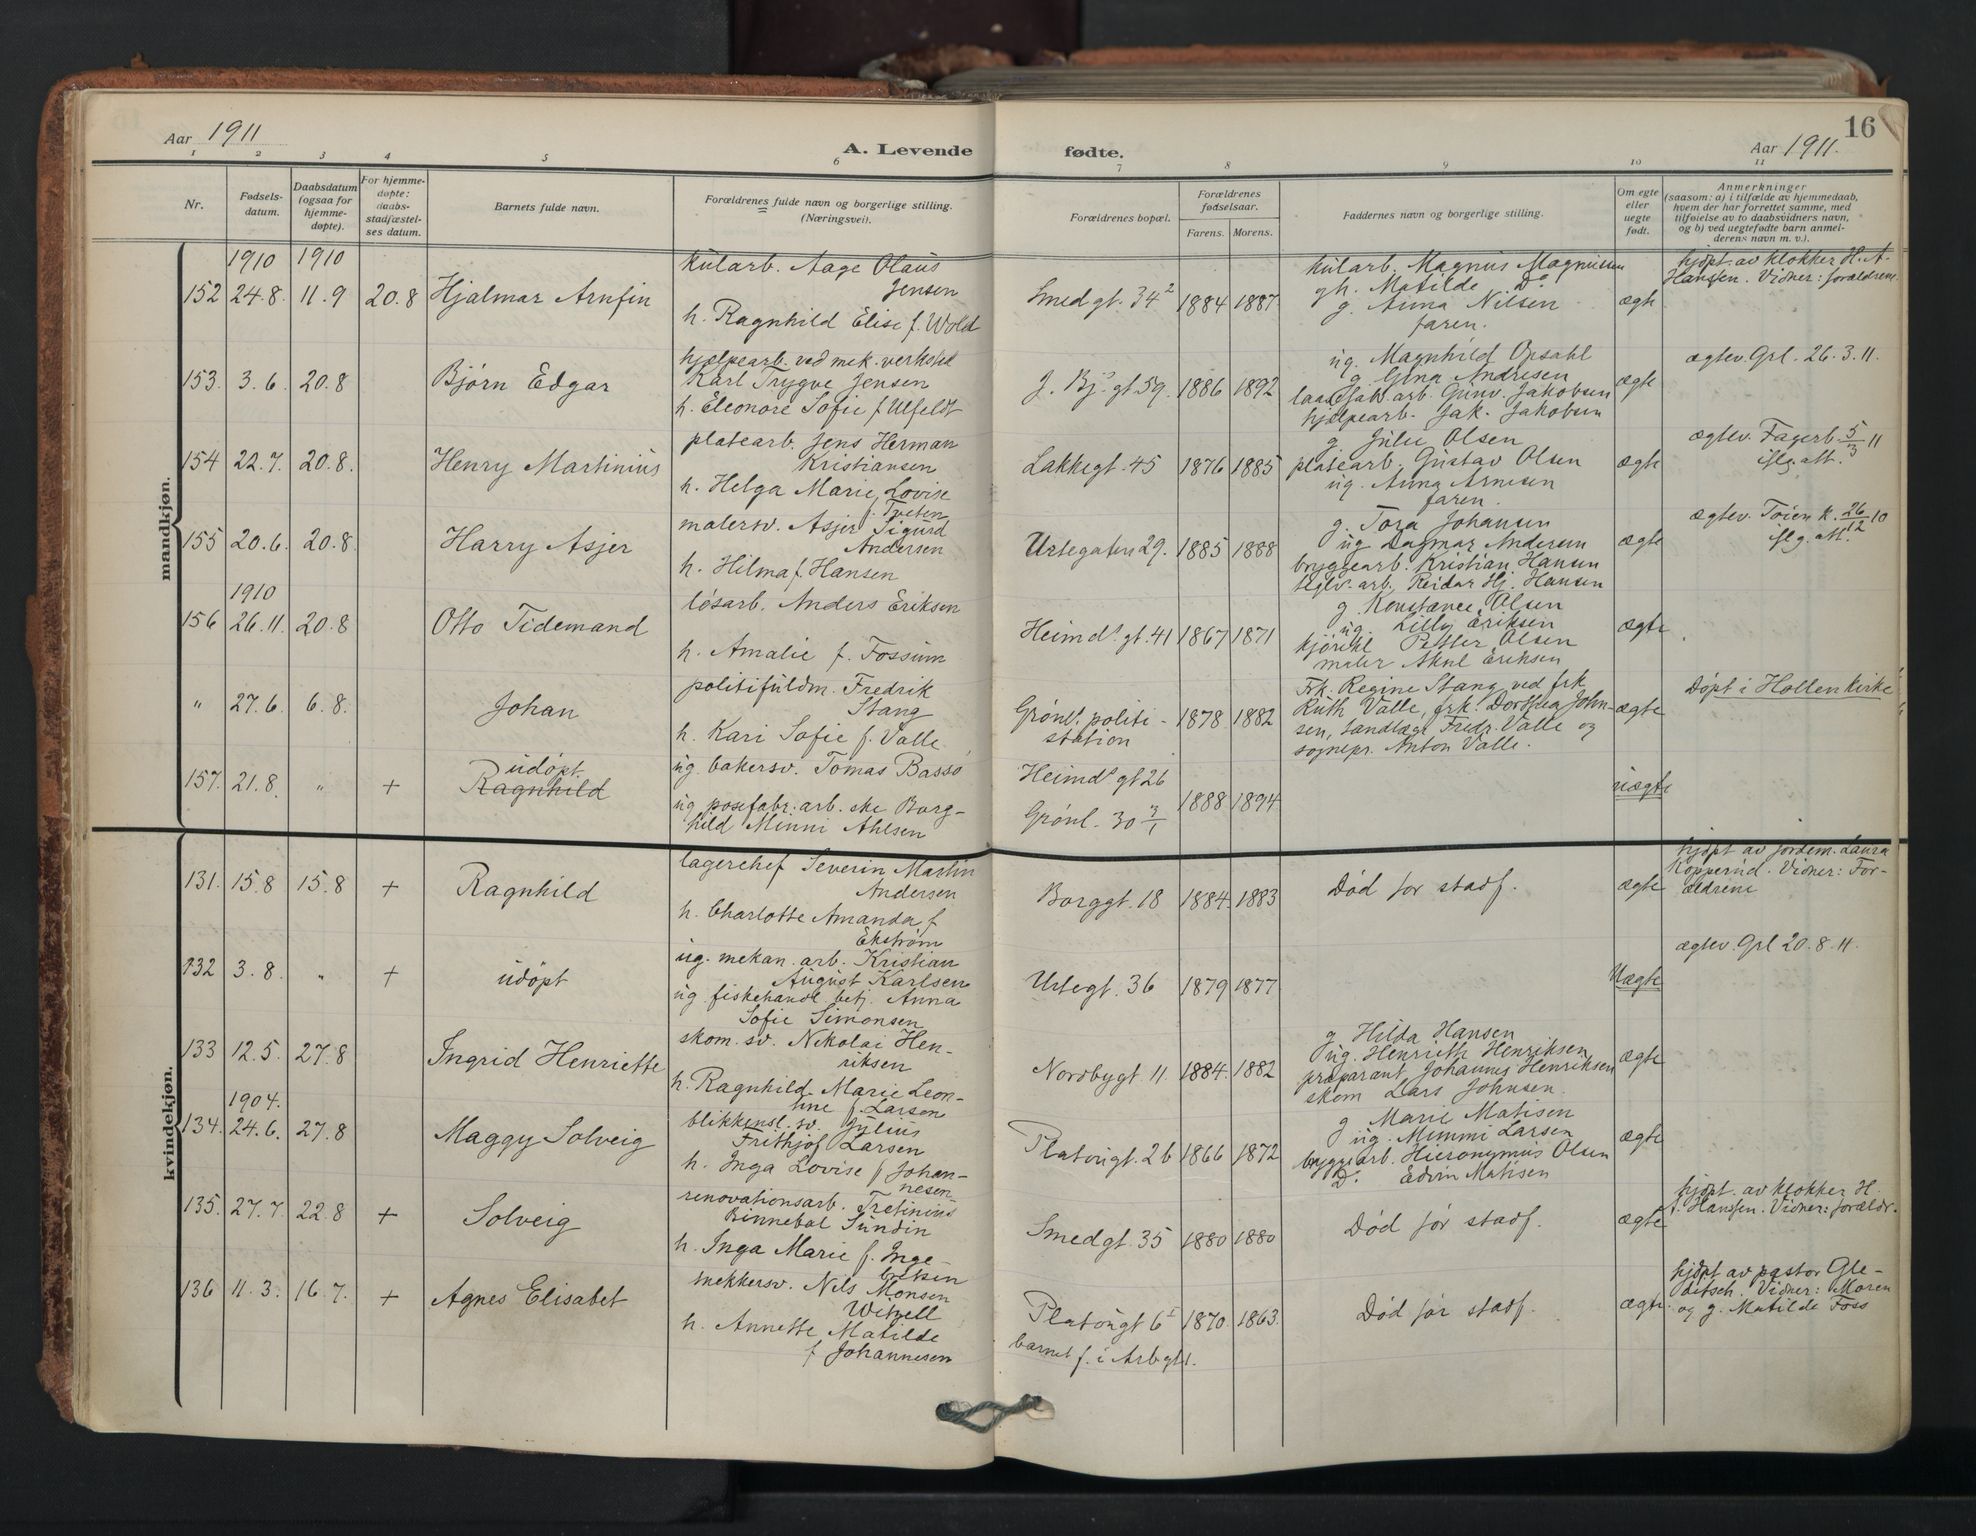 Aar 1911
A. Levende fødte.
Aar 1911.
16
1 2 3 4 5 6 7 8 9 10 11
Nr.
Fødsels-datum.
Daabsdatum (ogsaa for hjemme-døpte).
For hjemme-døpte: daabs-stadfæstel-ses datum.
Barnets fulde navn.
Forældrenes fulde navn og borgerlige stilling. (Næringsvei).
Forældrenes bopæl.
Forældrenes fødselsaar.
Farens. Morens.
Faddernes navn og borgerlige stilling.
Om egte eller uegte født.
Anmerkninger
(saasom: a) i tilfælde av hjemmedaab, hvem der har forrettet samme, med tilføielse av to daabsvidners navn, og b) ved uegtefødte barn anmel-derens navn m. v.).
mandkjøn.
1910 1910
152 24.8. 11.9 20.8 Hjalmar Arnfin
kularb. Aage Olaus
Jensen
h. Ragnhild Elise f. Wold
Smedgt. 34² 1884 1887
kularb. Magnus Magnusen
gh. Matilde Do
g. Anna Nilsen
faren.
ægte
hjdpt. av klokker H. A.
Hansen. Vidner: forældrene
153. 3.6. 20.8 Bjørn Edgar
hjælpearb. ved mek. verksted
Karl Trygve Jensen
h. Eleonore Sofie f. Ulfeldt
J. Bj. gt 59. 1886 1892
ug. Magnhild Opsahl
g. Gina Andresen
arb. Gunv. Jakobsen
hjælpearb. Jak. Jakobsen
ægte
ægtev. Grl. 26.3.11.
154 22.7. 20.8. Henry Martinius
platearb. Jens Herman
Kristiansen
h. Helga Marie Lovise
f. Tveten
Lakkegt. 45 1876 1885
g. Julie Olsen
platearb. Gustav Olsen
ug. Anna Arnesen
faren.
ægte
ægtev. Fagerb. 5/3 11
iflg. att.
155 20.6. 20.8. Harry Asjer
malersv. Asjer Sigurd
Andersen
h. Hilma f. Hansen
Urtegaten 29. 1885 1888
g. Tora Johansen
ug Dagmar Andersen
bryggearb. Kristian Hansen
teglv. arb. Reidar Hj. Hansen
ægte
ægtev. Tøien k. 26/12 10
iflg. att.
1910
156 26.11. 20.8 Otto Tidemand
løsarb. Anders Eriksen
h. Amalie f. Fossum
Heimds. gt. 41 1867 1871
g. Konstance Olsen
ug. Lilly Eriksen
Petter Olsen
maler Eriksen
ægte
" 27.6. 6.8. Johan
politifuldm. Fredrik
Stang
h. Kari Sofie f. Valle.
Grønl. politi-
station
1878 1882
Frk. Regine Stang ved frk
Ruth Valle, frk. Dorthea John-
sen, tandlæge Fredr. Valle og
sognepr. Anton Valle.
ægte
Døpt i Holten kirke
157. 21.8. " + udøpt.
Ragnhild
ug. bakersv. Tomas Basso
ug posefabr. arb. ske Borg-
hild Minni Ahlsen
Heimds gt 26
Grønl. 30 3/1
1888 1894
uægte
kvindekjøn.
131. 15.8 15.8 + Ragnhild
lagerchef Severin Martin
Andersen
h. Charlotte Amanda f
Ekstrøm
Borggt. 18 1884. 1883
Død før stadf.
ægte
hjdpt av jordem. Laura
Kopperud. Vidner: For-
ældrene
132 3.8. " + udøpt
ug. mekan. arb. Kristian
August Karlsen
ug fiskehandl. betj. Anna
Sofie Simonsen
Urtegt. 36 1879 1877
Uægte
ægtev. Grl 20.8.11.
133 12.5. 27.8 Ingrid Henriette
skom. sv. Nikolai Hen-
riksen
h. Ragnhild Marie Leon-
tine f. Larsen
Nordbygt. 11. 1884. 1882
g Hilda Hansen
ug. Henriette Henriksen
præparant Johannes Henriksen
skom Lars Johnsen.
ægte
1904.
134. 24.6. 27.8 Maggy Solveig
blikkensl. sv. Julius
Frithjof Larsen
h. Inga Lovise f Johan-
nesen
Platougt. 26 1866 1872
g Marie Matisen
ug. Mimmi Larsen
bryggearb. Hieronymus Olsen
Do. Edvin Matisen
ægte
135. 27.7. 22.8 + Solveig
renovationsarb. Tretinius
Binnebal Sundin
h. Inga Marie f. Inge-
bretsen
Smedgt. 35 1880 1880
Død før stadf.
ægte
hjdpt. av klokker H.
A. Hanssen. Vidner: forældr.
136 11.3. 16.7. + Agnes Elisabet
snekkersv. Nils Monsen
Witzell
h. Annette Matilde
f Johannesen
Platougt 6
barnet f. i Arbgt 1.
1870. 1863.
Død før stadf.
ægte
hjdpt av pastor Gle-
ditsch. Vidner: Moren
og g. Matilde Foss